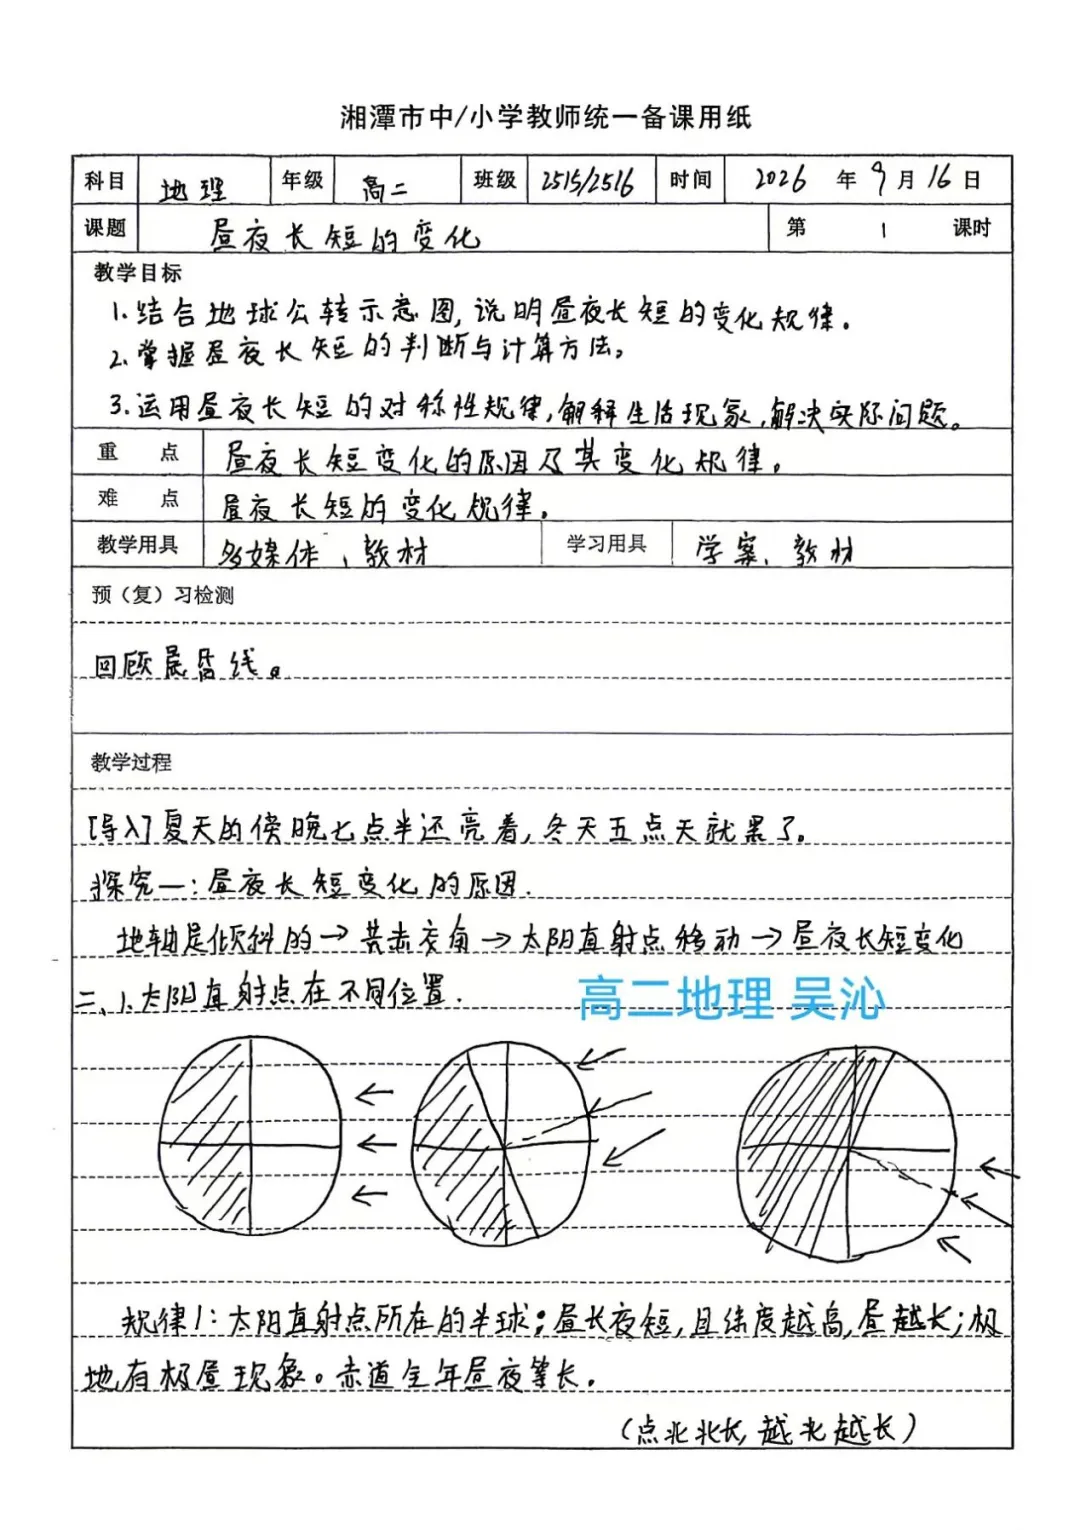 湘潭市中/小学教师统一备课用纸
科目 地理 年级 高二 班级 2515/2516 时间 2026 年 9 月 16 日
课题 昼夜长短的变化 第 1 课时
教学目标
1.结合地球公转示意图,说明昼夜长短的变化规律。
2.掌握昼夜长短的判断与计算方法。
3.运用昼夜长短的对称性规律,解释生活现象,解决实际问题。
重 点 昼夜长短变化的原因及其变化规律。
难 点 昼夜长短的变化规律。
教学用具 多媒体、教材 学习用具 学案、教材
预（复）习检测
回顾晨昏线。
教学过程
[导入]夏天的傍晚七点半还亮着,冬天五点天就黑了。
探究一:昼夜长短变化的原因.
地轴是倾斜的→黄赤交角→太阳直射点移动→昼夜长短变化
二、1.太阳直射点在不同位置.
高二地理 吴沁
规律1:太阳直射点所在的半球:昼长夜短,且纬度越高,昼越长;极
地有极昼现象。赤道全年昼夜等长.
(点北北长,越北越长)